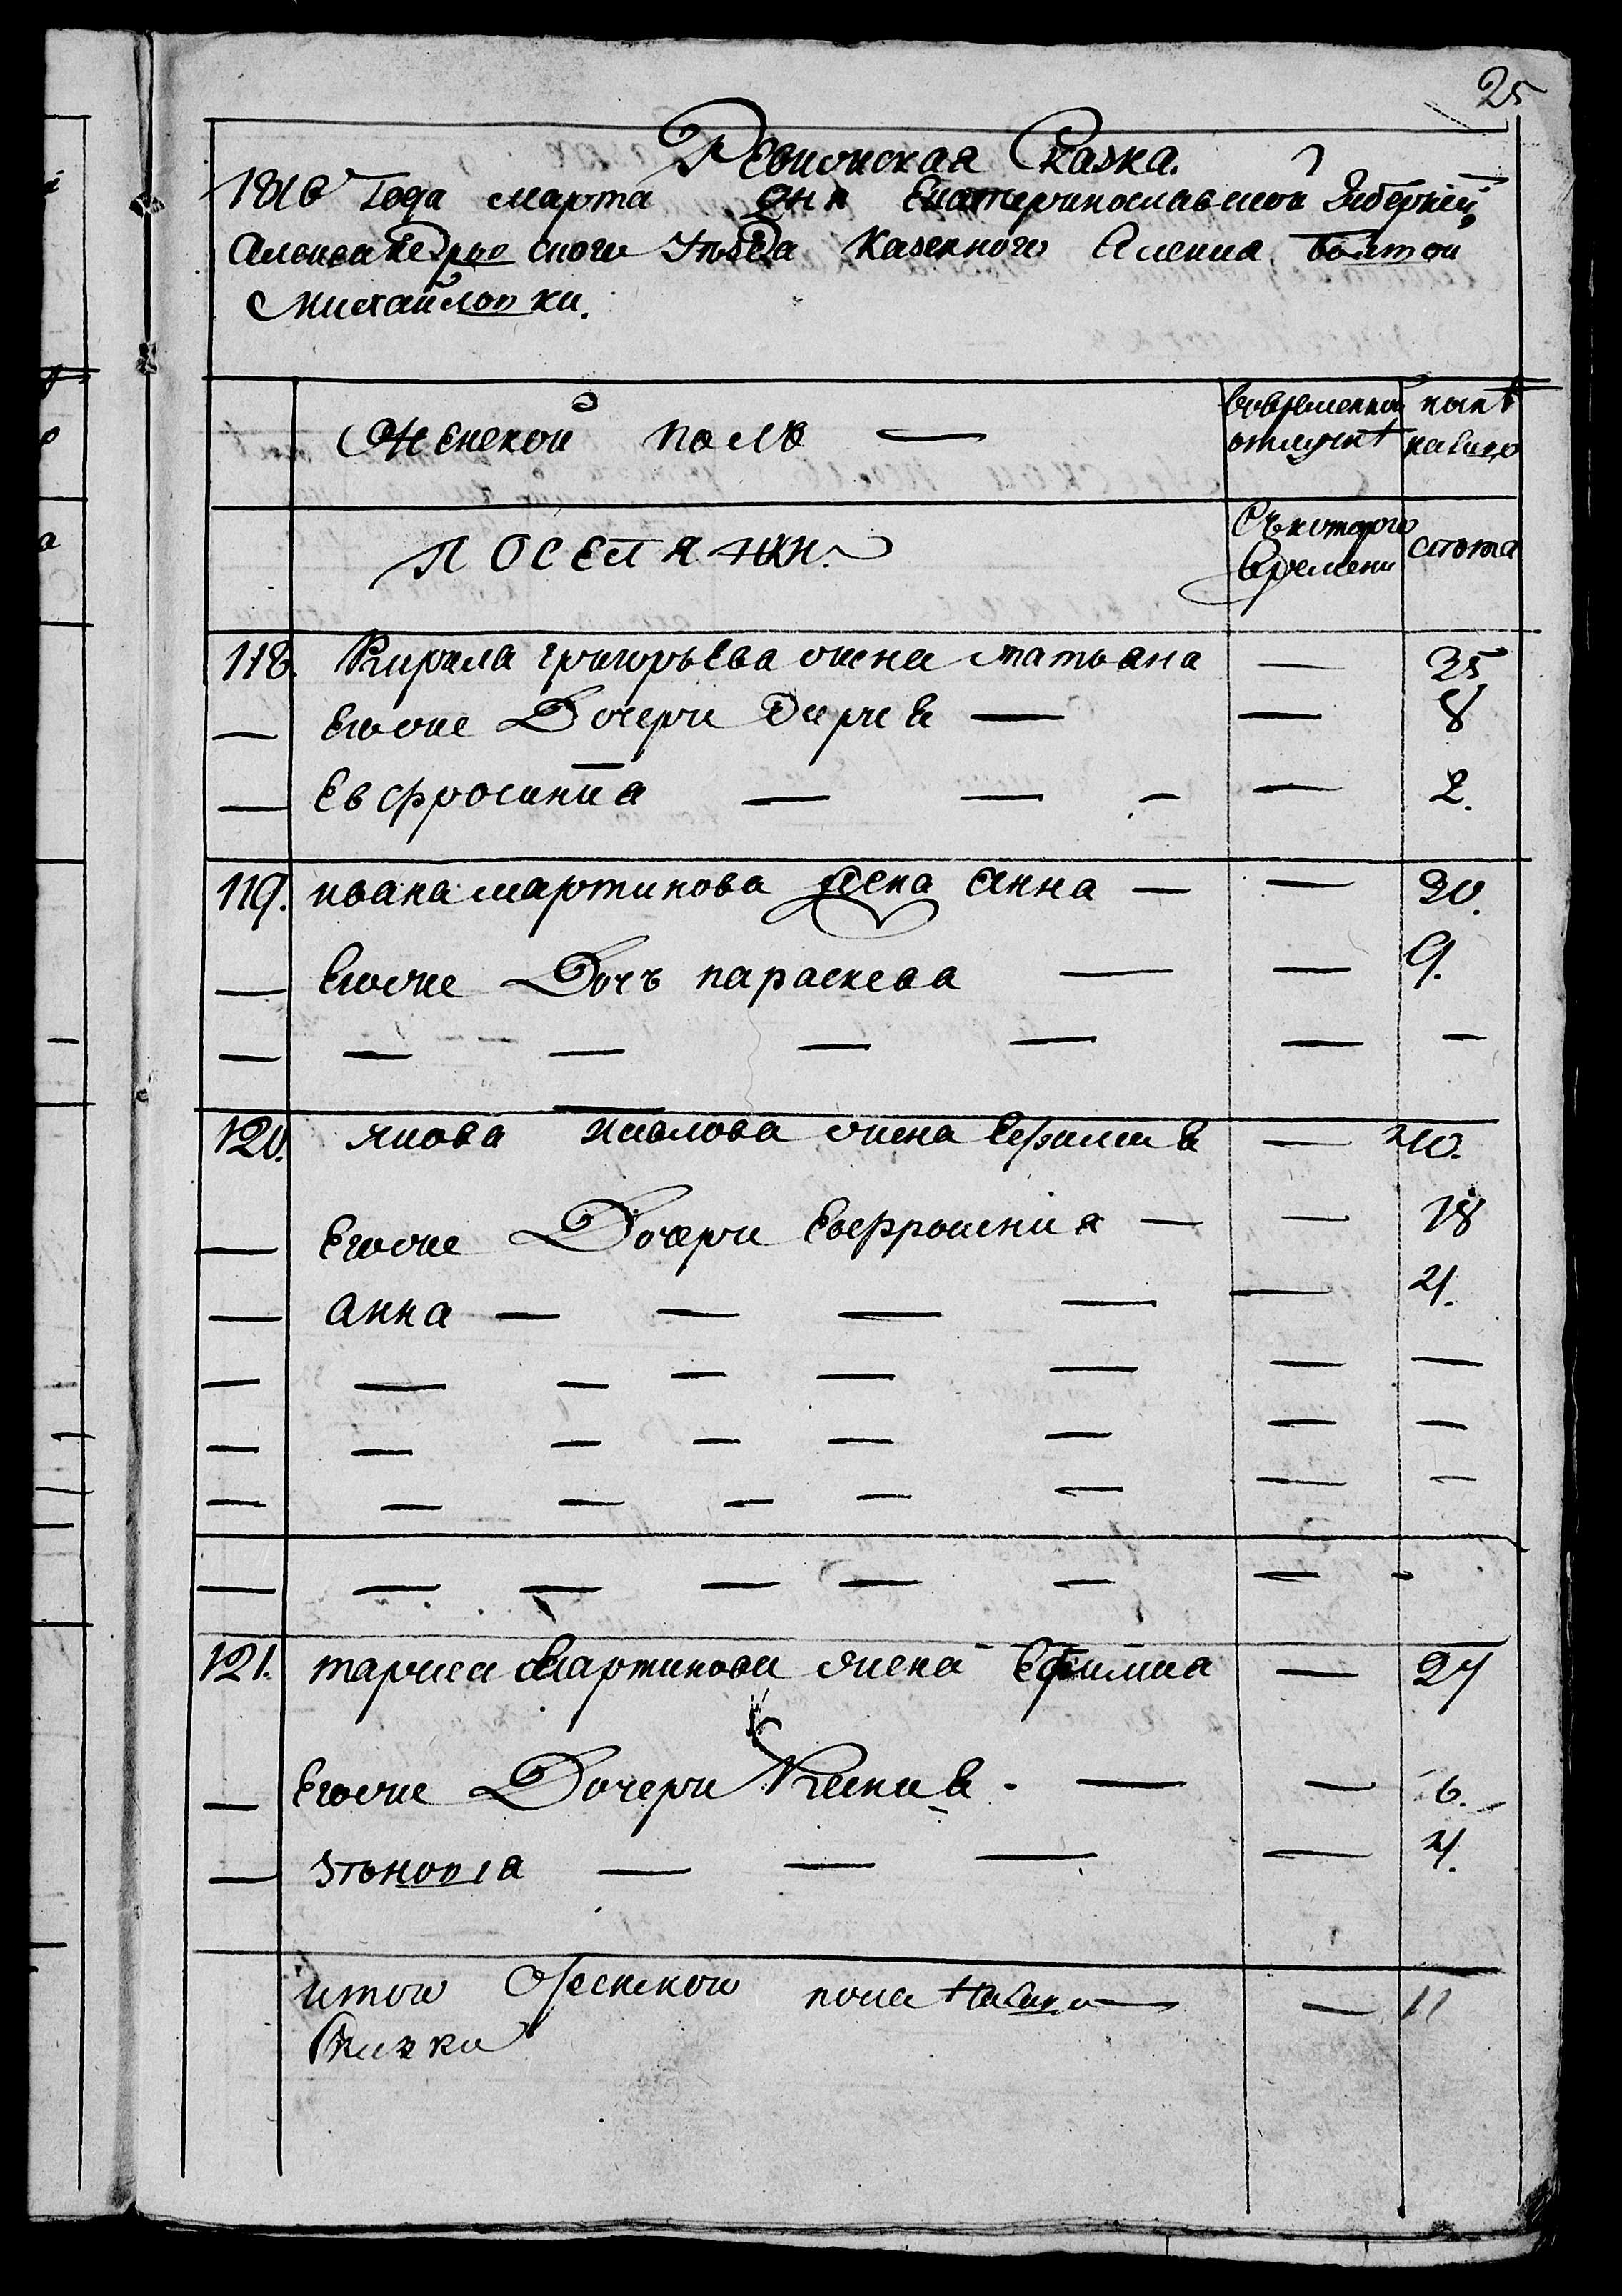 25
Ревизская Сказка.
1816 года марта дня Екатеринославской Губернии
Александровского Уѣзда Казенного Селения
Михайловки.
Женской полъ
во временной отлучкѣ
нынѣ на лицо
поселянки.
Съ котораго времени
лѣта
118. Кирила григорьева жена татьяна — 35
— Егоже Дочери Дария — — 8
— Евфросиния — — — — 2.
119. ивана мартинова жена Анна — — 30.
— Егоже Дочъ параскева — — 9.
— — — — — — —
120. якова павлова жена Ефимия — 40.
— Егоже Дочери Евфросиния — — 18
— Анна — — — — — 4.
— — — — — — — —
— — — — — — — —
— — — — — — — —
— — — — — — — -
121. тараса Мартинова жена Ефимиа — 27
— Егоже Дочери Ксения - — — 6.
— Зѣновія — — — — 4.
итого Женского пола налицо — — 11